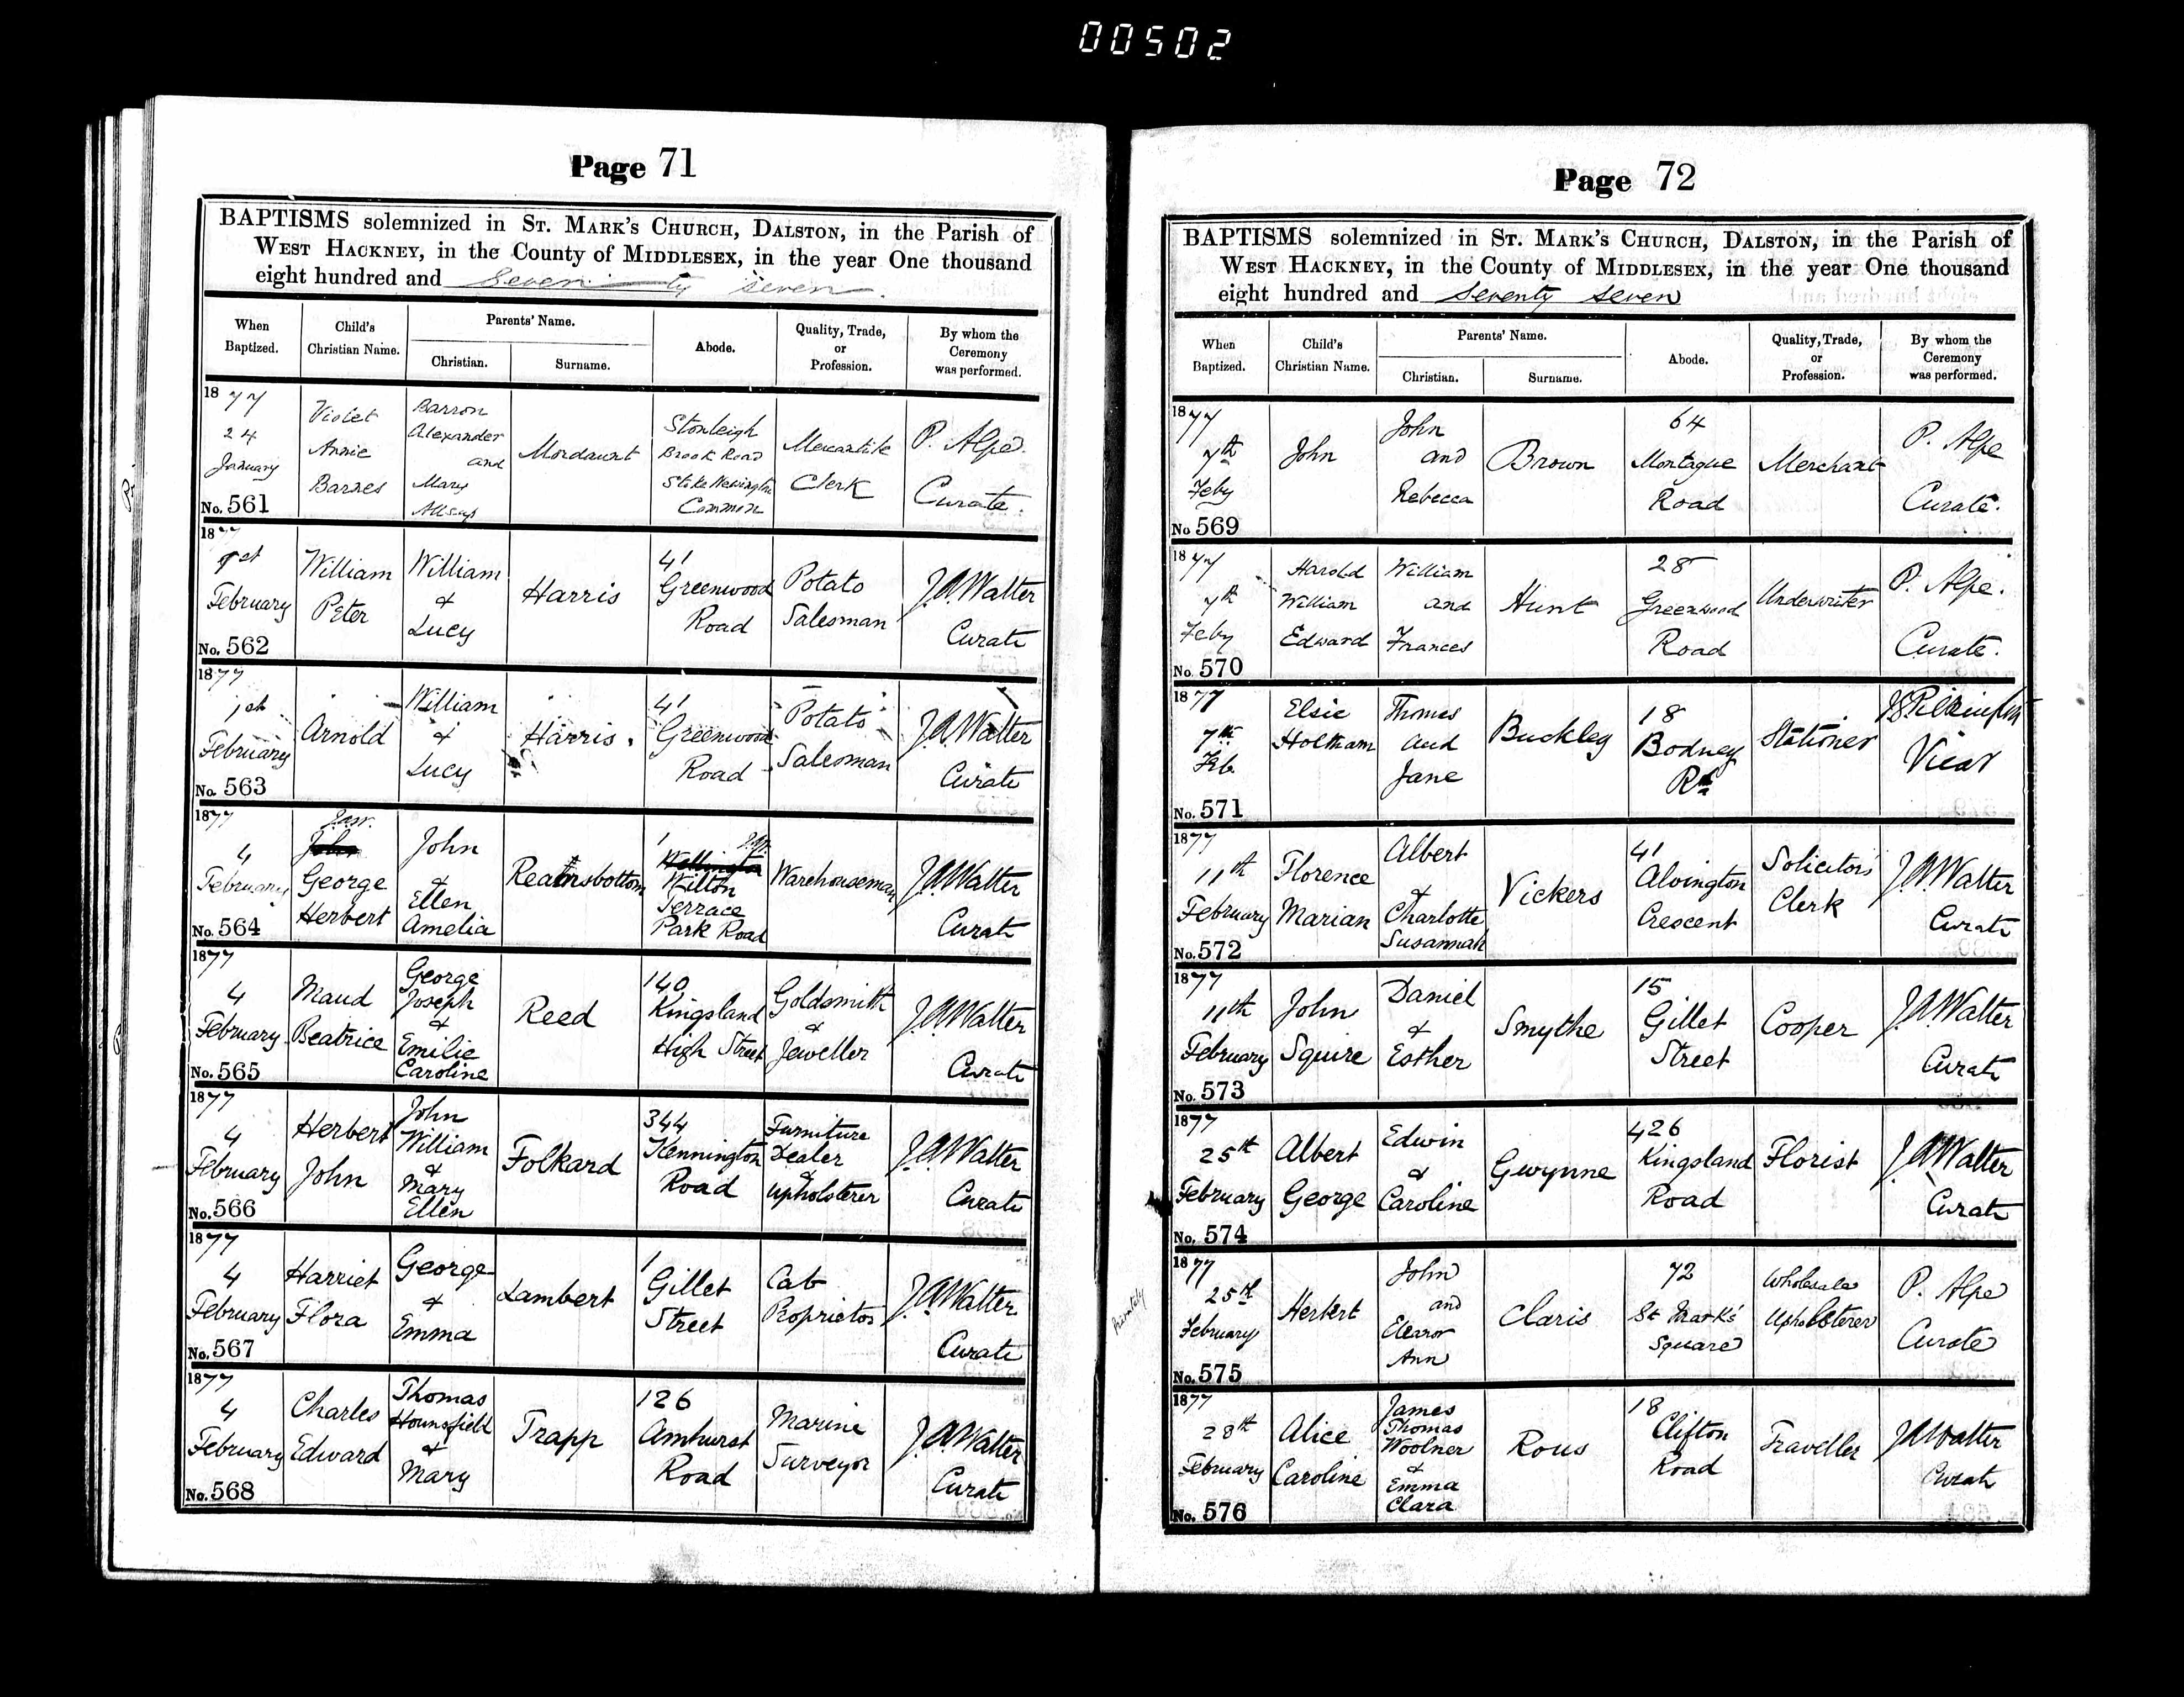 00502
Page 71
BAPTISMS solemnized in ST. MARK'S CHURCH, DALSTON, in the Parish of
WEST HACKNEY, in the County of MIDDLESEX, in the year One thousand
eight hundred and Seventy seven.
When Baptized.
Child's Christian Name.
Parents' Name.
Christian.
Surname.
Abode.
Quality, Trade, or Profession.
By whom the Ceremony was performed.
1877
24
January
No. 561
Violet
Annie
Barnes
Barron
Alexander
and
Mary
Allsup
Mordaunt
Stonleigh
Brook Road
Stoke Newington
Common
Mercantile
Clerk
P. Alpe.
Curate.
18
1st
February
No. 562
William
Peter
William
&
Lucy
Harris
41
Greenwood
Road
Potato
Salesman
J.A.Walter
Curate
1877
1st
February
No. 563
Arnold
William
&
Lucy
Harris.
41
Greenwood
Road
Potato
Salesman
J.A.Walter
Curate
1877
4
February
No. 564
J.A.W.
John
George
Herbert
John
&
Ellen
Amelia
1
Wellington
Wilton
Terrace
Park Road
Warehouseman
J.A.Walter
Curate
1877
4
February
No. 565
Maud
Beatrice
George
Joseph
&
Emilie
Caroline
Reed
140
Kingsland
High Street
Goldsmith
&
Jeweller
J.A.Walter
Curate
1877
4
February
No. 566
Herbert
John
John
William
&
Mary
Ellen
Folkard
344
Kennington
Road
Furniture
Dealer
&
Upholsterer
J.A.Walter
Curate
1877
4
February
No. 567
Harriet
Flora
George
&
Emma
Lambert
1
Gillet
Street
Cab
Proprietor
J.A.Walter
Curate
1877
4
February
No. 568
Charles
Edward
Thomas
Hounsfield
&
Mary
Trapp
126
Amhurst
Road
Marine
Surveyor
J.A.Walter
Curate
Page 72
BAPTISMS solemnized in ST. MARK'S CHURCH, DALSTON, in the Parish of
WEST HACKNEY, in the County of MIDDLESEX, in the year One thousand
eight hundred and Seventy seven
When Baptized.
Child's Christian Name.
Parents' Name.
Christian.
Surname.
Abode.
Quality, Trade, or Profession.
By whom the Ceremony was performed.
1877
7th
Feby
No 569
John
John
and
Rebecca
Brown
64
Montague
Road
Merchant
P. Alpe
Curate.
1877
7th
Feby
No. 570
Harold
William
Edward
William
and
Frances
Hunt
28
Greenwood
Road
Underwriter
P. Alpe.
Curate.
1877
7th
Feb.
No. 571
Elsie
Holtham
Thomas
and
Jane
Buckley
18
Bodney
Rd
Stationer
Vicar
1877
11th
February
No. 572
Florence
Marian
Albert
&
Charlotte
Susannah
Vickers
41
Alvington
Crescent
Solicitors
Clerk
J.A.Walter
Curate
1877
11th
February
No. 573
John
Squire
Daniel
&
Esther
Smythe
15
Gillet
Street
Cooper
J.A.Walter
Curate
1877
25th
February
No. 574
Albert
George
Edwin
&
Caroline
Gwynne
426
Kingsland
Road
Florist
J.A.Walter
Curate
Privately
1877
25th
February
No. 575
Herbert
John
and
Eleanor
Ann
Claris
72
St Mark's
Square
Wholesale
Upholsterer
P. Alpe
Curate
1877
28th
February
No. 576
Alice
Caroline
James
Thomas
Woolner
&
Emma
Clara
Rous
18
Clifton
Road
Traveller
J.A.Walter
Curate